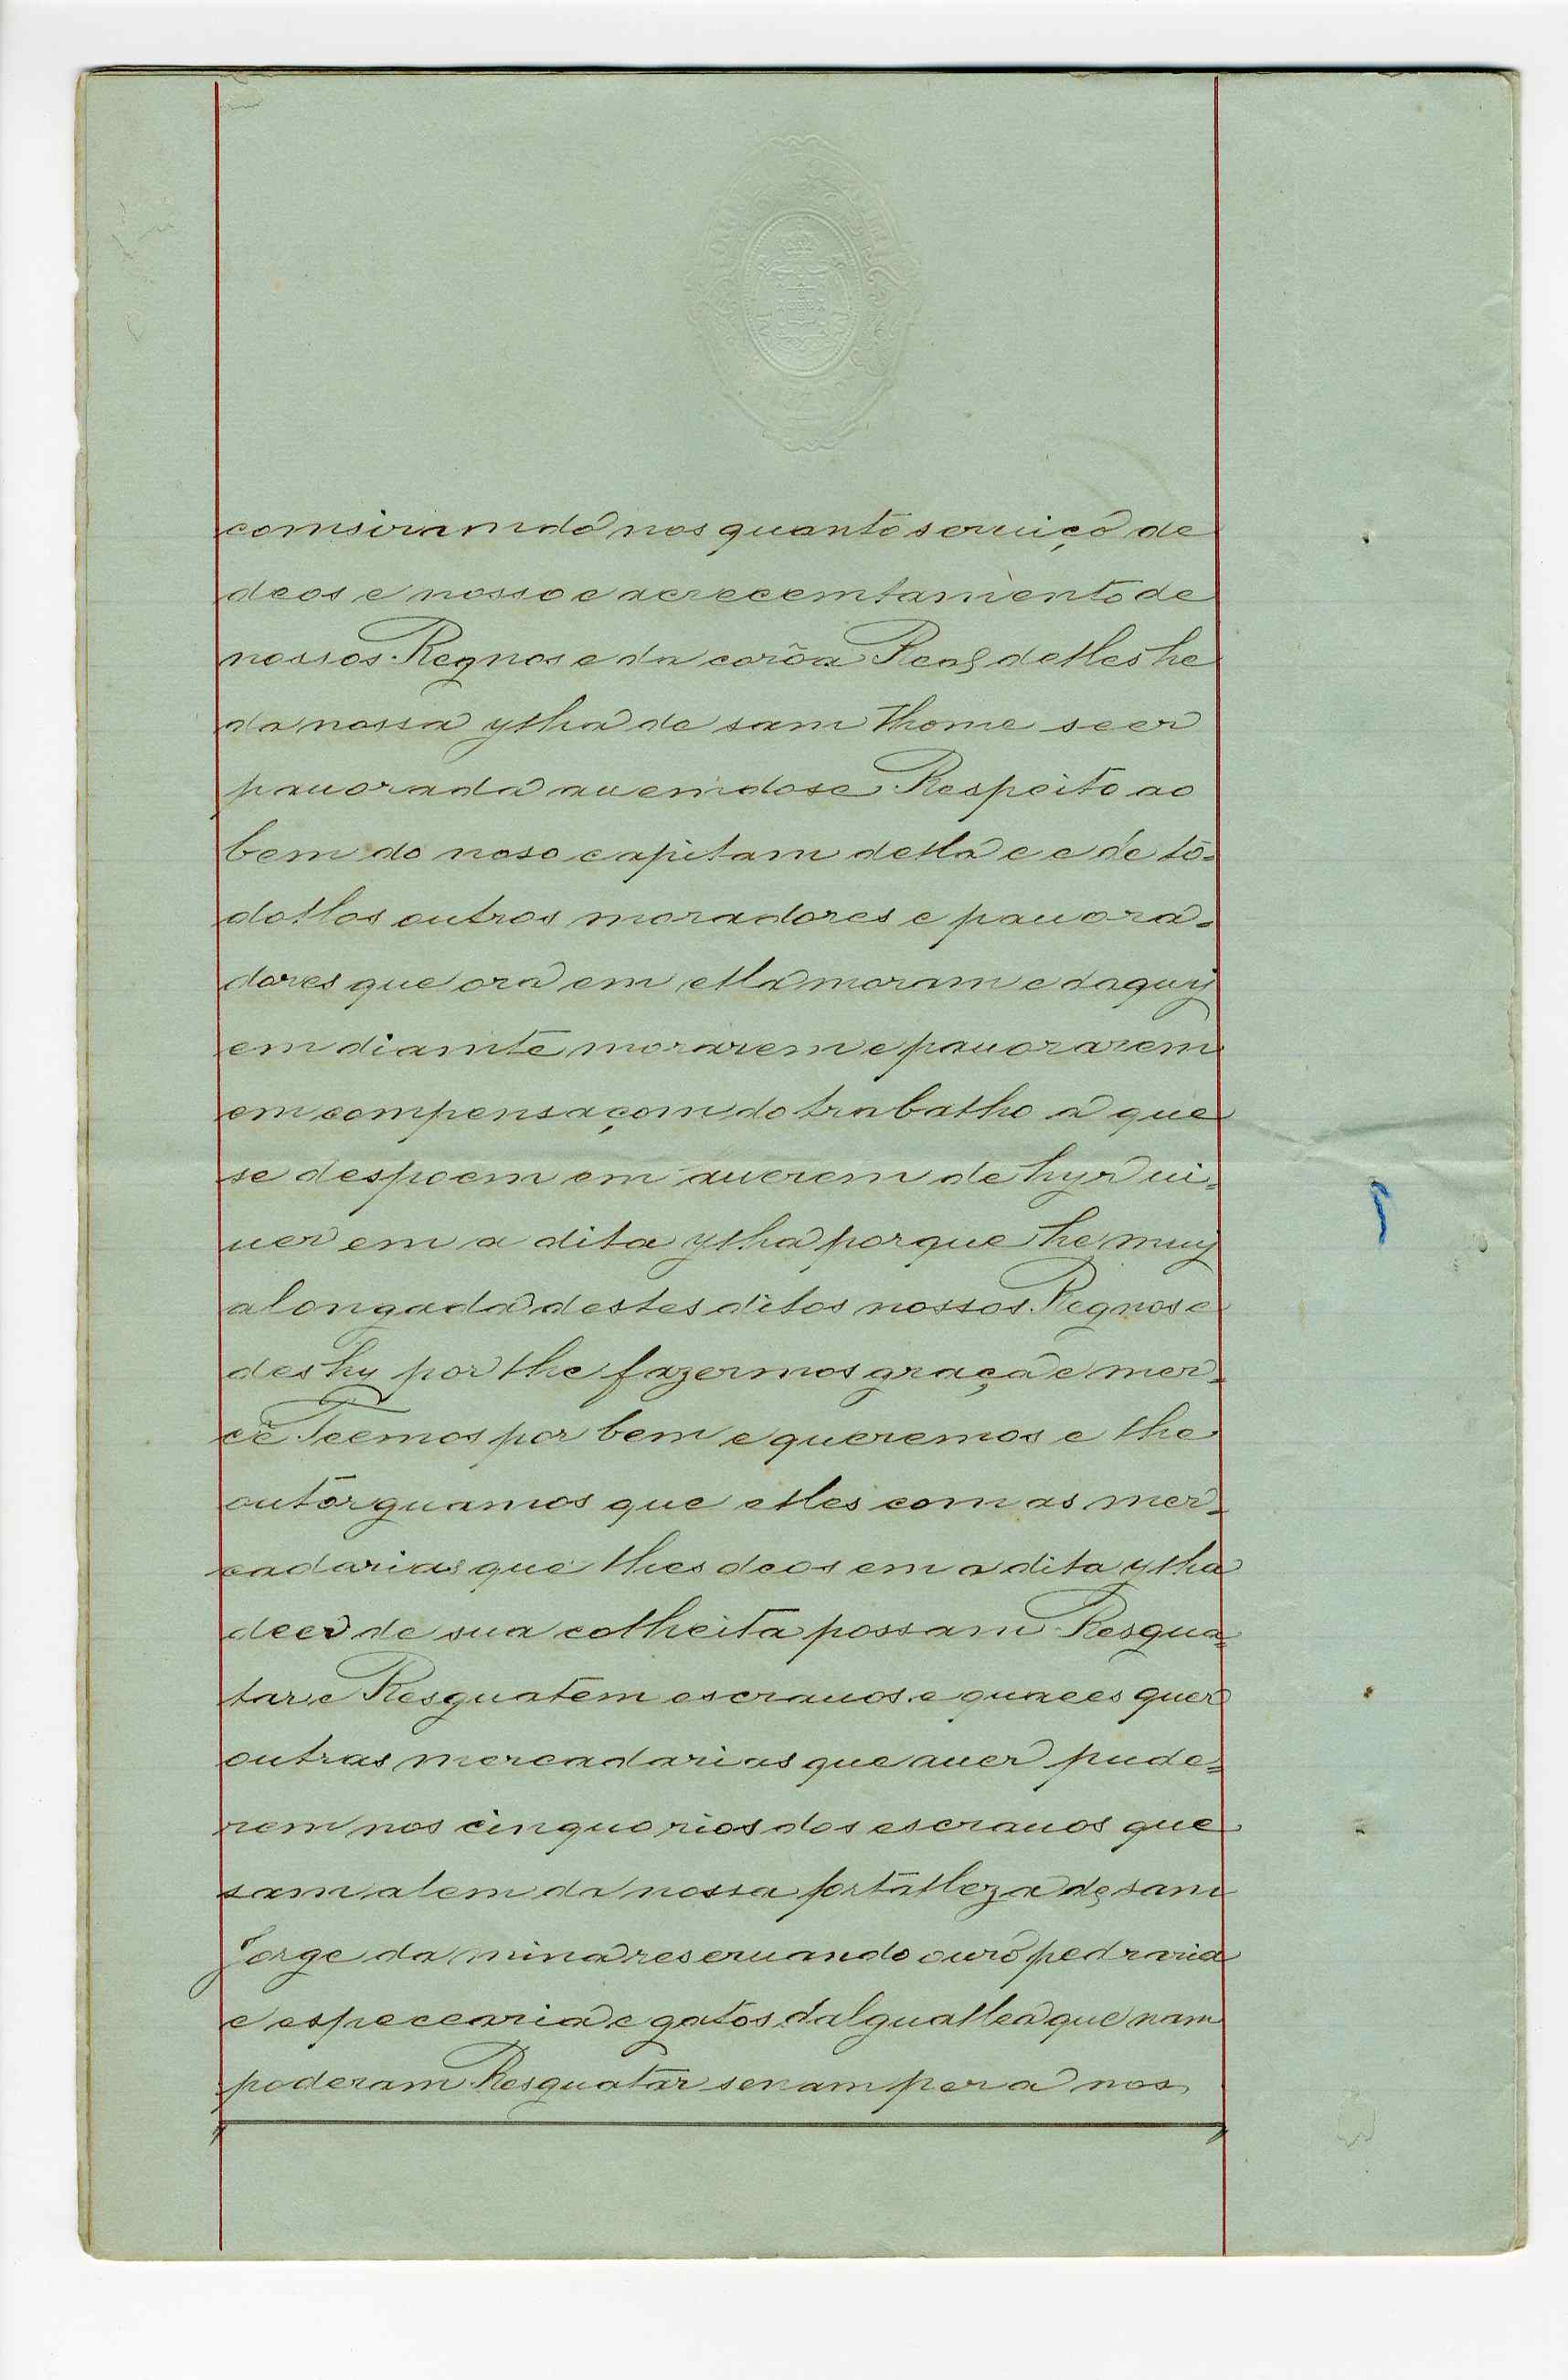 comsiramdo nos quanto seruiço de
deos e nosso e acrecemtamento de
nossos Regnos e da corôa Real delles he
da nossa ylha de sam Thome seer
pauorada auemdose Respeito ao
bem do noso capitam della e e de to-
dollos outros moradores e pauora-
dores que ora em ella moram e daquy
em diamte morarem e pauorarem
em compensaçom do trabalho a que
se despoem em auerem de hyr ui-
uer em a dita ylha porque he muy
alongada destes ditos nossos Regnos e
des hy por lhe fazermos graça e mer-
cê Teemos por bem e queremos e lhe
outorguamos que elles com as mer-
cadarias que lhes deos em a dita ylha
deer de sua colheita possam Resgua-
tar e Resguatem escrauos e quaees quer
outras mercadarias que auer pude-
rem nos cinquo rios dos escrauos que
sam alem da nossa fortalleza de sam
Jorge da mina reseruando ouro pedraria
e especearia e gatos dalguallea que nam
poderam Resguatar senam pera nos